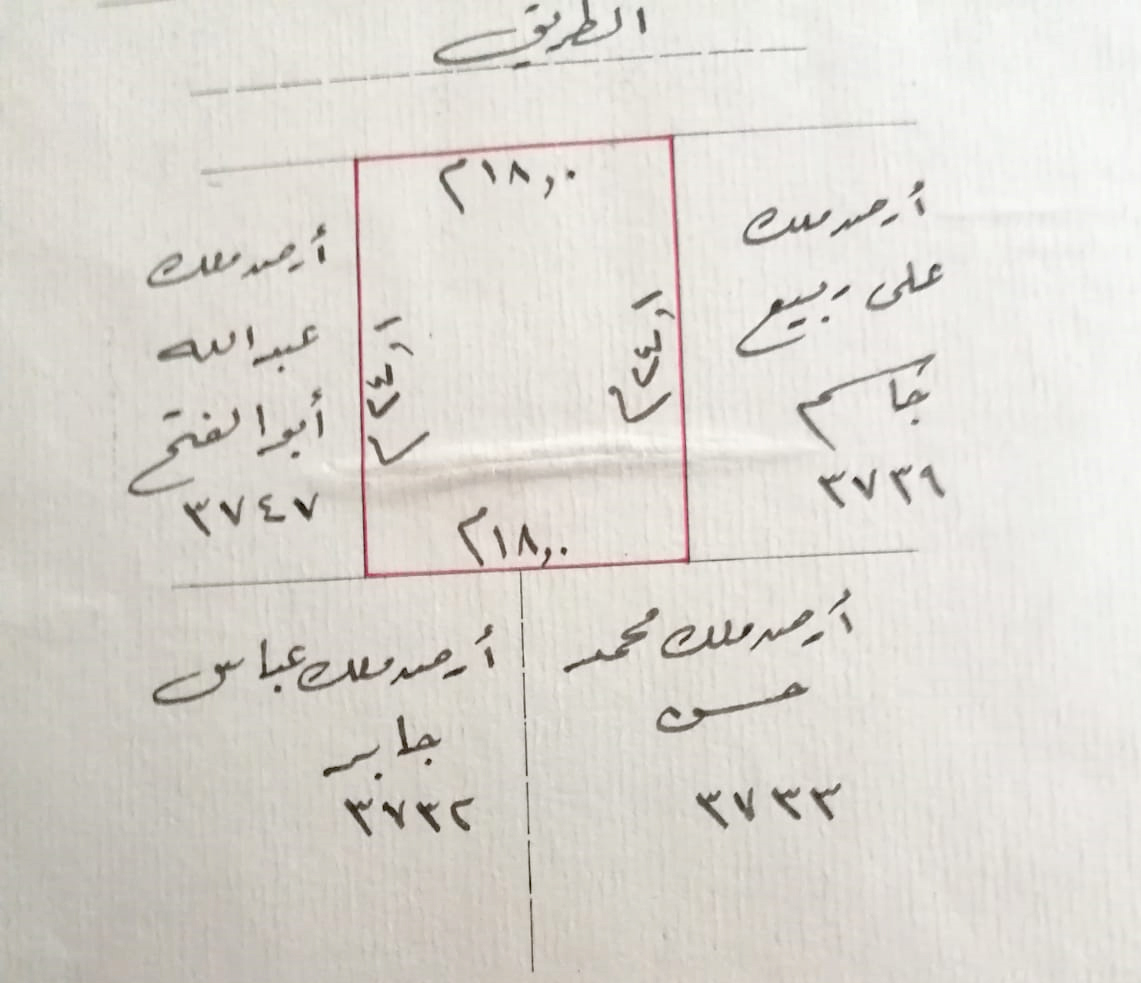 الطريق
١٨,٠م
أرض ملك
على ربيع
جاسم
٣٧٣٩
أرض ملك
عبدالله
أبوالفتح
٣٧٤٧
١٨,٠م
أرض ملك محمد
حسن
٣٧٣٣
أرض ملك عباس
جابر
٣٧٣٢